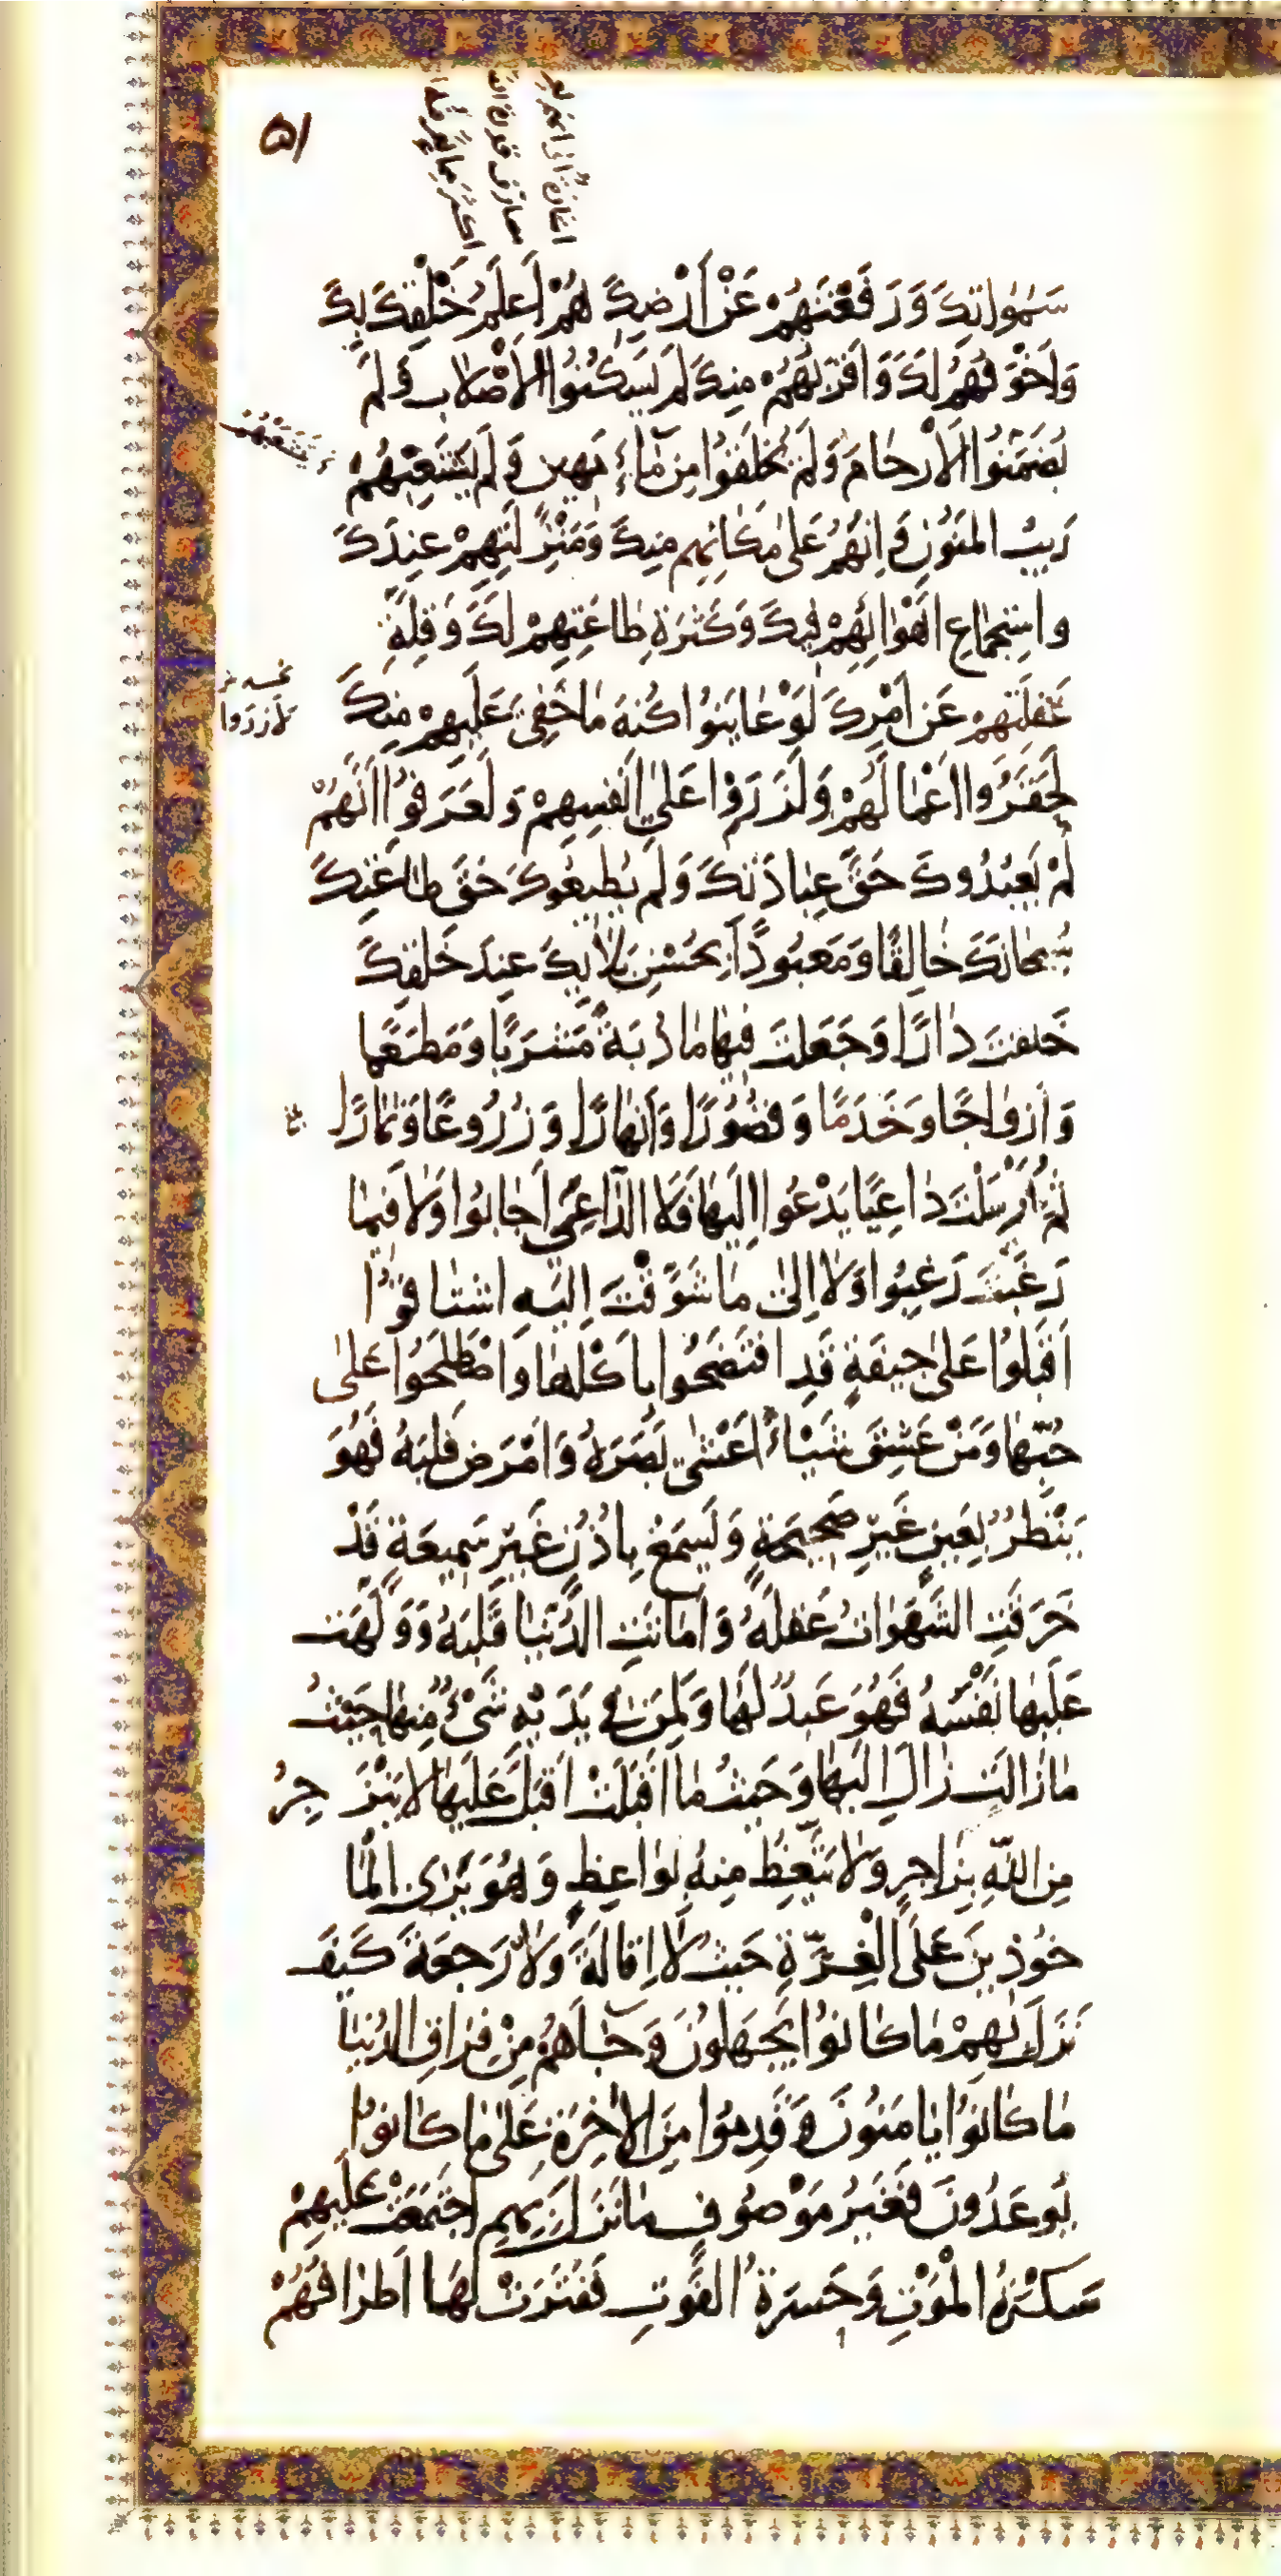 ۵۱
سَمٰوٰاتِكَ وَرَفَعْتَهُمْ عَنْ اَرْضِكَ هُمْ اَعْلَمُ خَلْقِكَ بِكَ
وَاَخْوَفُهُمْ لَكَ وَاَقْرَبُهُمْ مِنْكَ لَمْ يَسْكُنُوا الْاَصْلٰابَ وَلَمْ
يُضَمَّنُوا الْاَرْحٰامَ وَلَمْ يُخْلَقُوا مِنْ مٰآءٍ مَهينٍ وَلَمْ يَتَشَعَّبْهُمْ
رَيْبُ الْمَنُونِ وَاِنَّهُمْ عَلىٰ مَكٰانِهِمْ مِنْكَ وَمَنْزِلَتِهِمْ عِنْدَكَ
وَاسْتِجْمٰاعِ اَهْوٰائِهِمْ فيكَ وَكَثْرَةِ طٰاعَتِهِمْ لَكَ وَقِلَّةِ
غَفْلَتِهِمْ عَنْ اَمْرِكَ لَوْ عٰايَنُوا كُنْهَ مٰا خَفِيَ عَلَيْهِمْ مِنْكَ
لَحَقَّرُوا اَعْمٰالَهُمْ وَلَزَرَوْا عَلىٰ اَنْفُسِهِمْ وَلَعَرَفُوا اَنَّهُمْ
لَمْ يَعْبُدُوكَ حَقَّ عِبٰادَتِكَ وَلَمْ يُطيعُوكَ حَقَّ طٰاعَتِكَ
سُبْحٰانَكَ خٰالِقًا وَمَعْبُودًا بِحُسْنِ بَلٰائِكَ عِنْدَ خَلْقِكَ
خَلَقْتَ دٰارًا وَجَعَلْتَ فيهٰا مٰادُبَةً مَشْرَبًا وَمَطْعَمًا
وَاَزْوٰاجًا وَخَدَمًا وَقُصُورًا وَاَنْهٰارًا وَزُرُوعًا وَثِمٰارًا
ثُمَّ اَرْسَلْتَ دٰاعِيًا يَدْعُوا اِلَيْهٰا فَلَا الدّٰاعِيَ اَجٰابُوا وَلٰا فيمٰا
رَغَّبْتَ رَغِبُوا وَلٰا اِلىٰ مٰا شَوَّقْتَ اِلَيْهِ اشْتٰاقُوا
اَقْبَلُوا عَلىٰ جيفَةٍ قَدِ افْتَضَحُوا بِاَكْلِهٰا وَاصْطَلَحُوا عَلىٰ
حُبِّهٰا وَمَنْ عَشِقَ شَيْئًا اَعْشىٰ بَصَرَهُ وَاَمْرَضَ قَلْبَهُ فَهُوَ
يَنْظُرُ بِعَيْنٍ غَيْرِ صَحيحَةٍ وَيَسْمَعُ بِاُذُنٍ غَيْرِ سَميعَةٍ قَدْ
خَرَقَتِ الشَّهَوٰاتُ عَقْلَهُ وَاَمٰاتَتِ الدُّنْيٰا قَلْبَهُ وَوَلِهَتْ
عَلَيْهٰا نَفْسُهُ فَهُوَ عَبْدٌ لَهٰا وَلِمَنْ في يَدَيْهِ شَيْءٌ مِنْهٰا حَيْثُ
مٰا زٰالَتْ زٰالَ اِلَيْهٰا وَحَيْثُمٰا اَقْبَلَتْ اَقْبَلَ عَلَيْهٰا لٰا يَنْزَجِرُ
مِنَ اللّٰهِ بِزٰاجِرٍ وَلٰا يَتَّعِظُ مِنْهُ بِوٰاعِظٍ وَهُوَ يَرَى الْمَا
خُوذينَ عَلَى الْغِرَّةِ حَيْثُ لٰا اِقٰالَةَ وَلٰا رَجْعَةَ كَيْفَ
نَزَلَ بِهِمْ مٰا كٰانُوا يَجْهَلُونَ وَجٰاءَهُمْ مِنْ فِرٰاقِ الدُّنْيٰا
مٰا كٰانُوا يٰامَنُونَ وَقَدِمُوا مِنَ الْاٰخِرَةِ عَلىٰ مٰا كٰانُوا
يُوعَدُونَ فَغَيْرُ مَوْصُوفٍ مٰا نَزَلَ بِهِمْ اجْتَمَعَتْ عَلَيْهِمْ
سَكْرَةُ الْمَوْتِ وَحَسْرَةُ الْفَوْتِ فَفَتَرَتْ لَهٰا اَطْرٰافُهُمْ